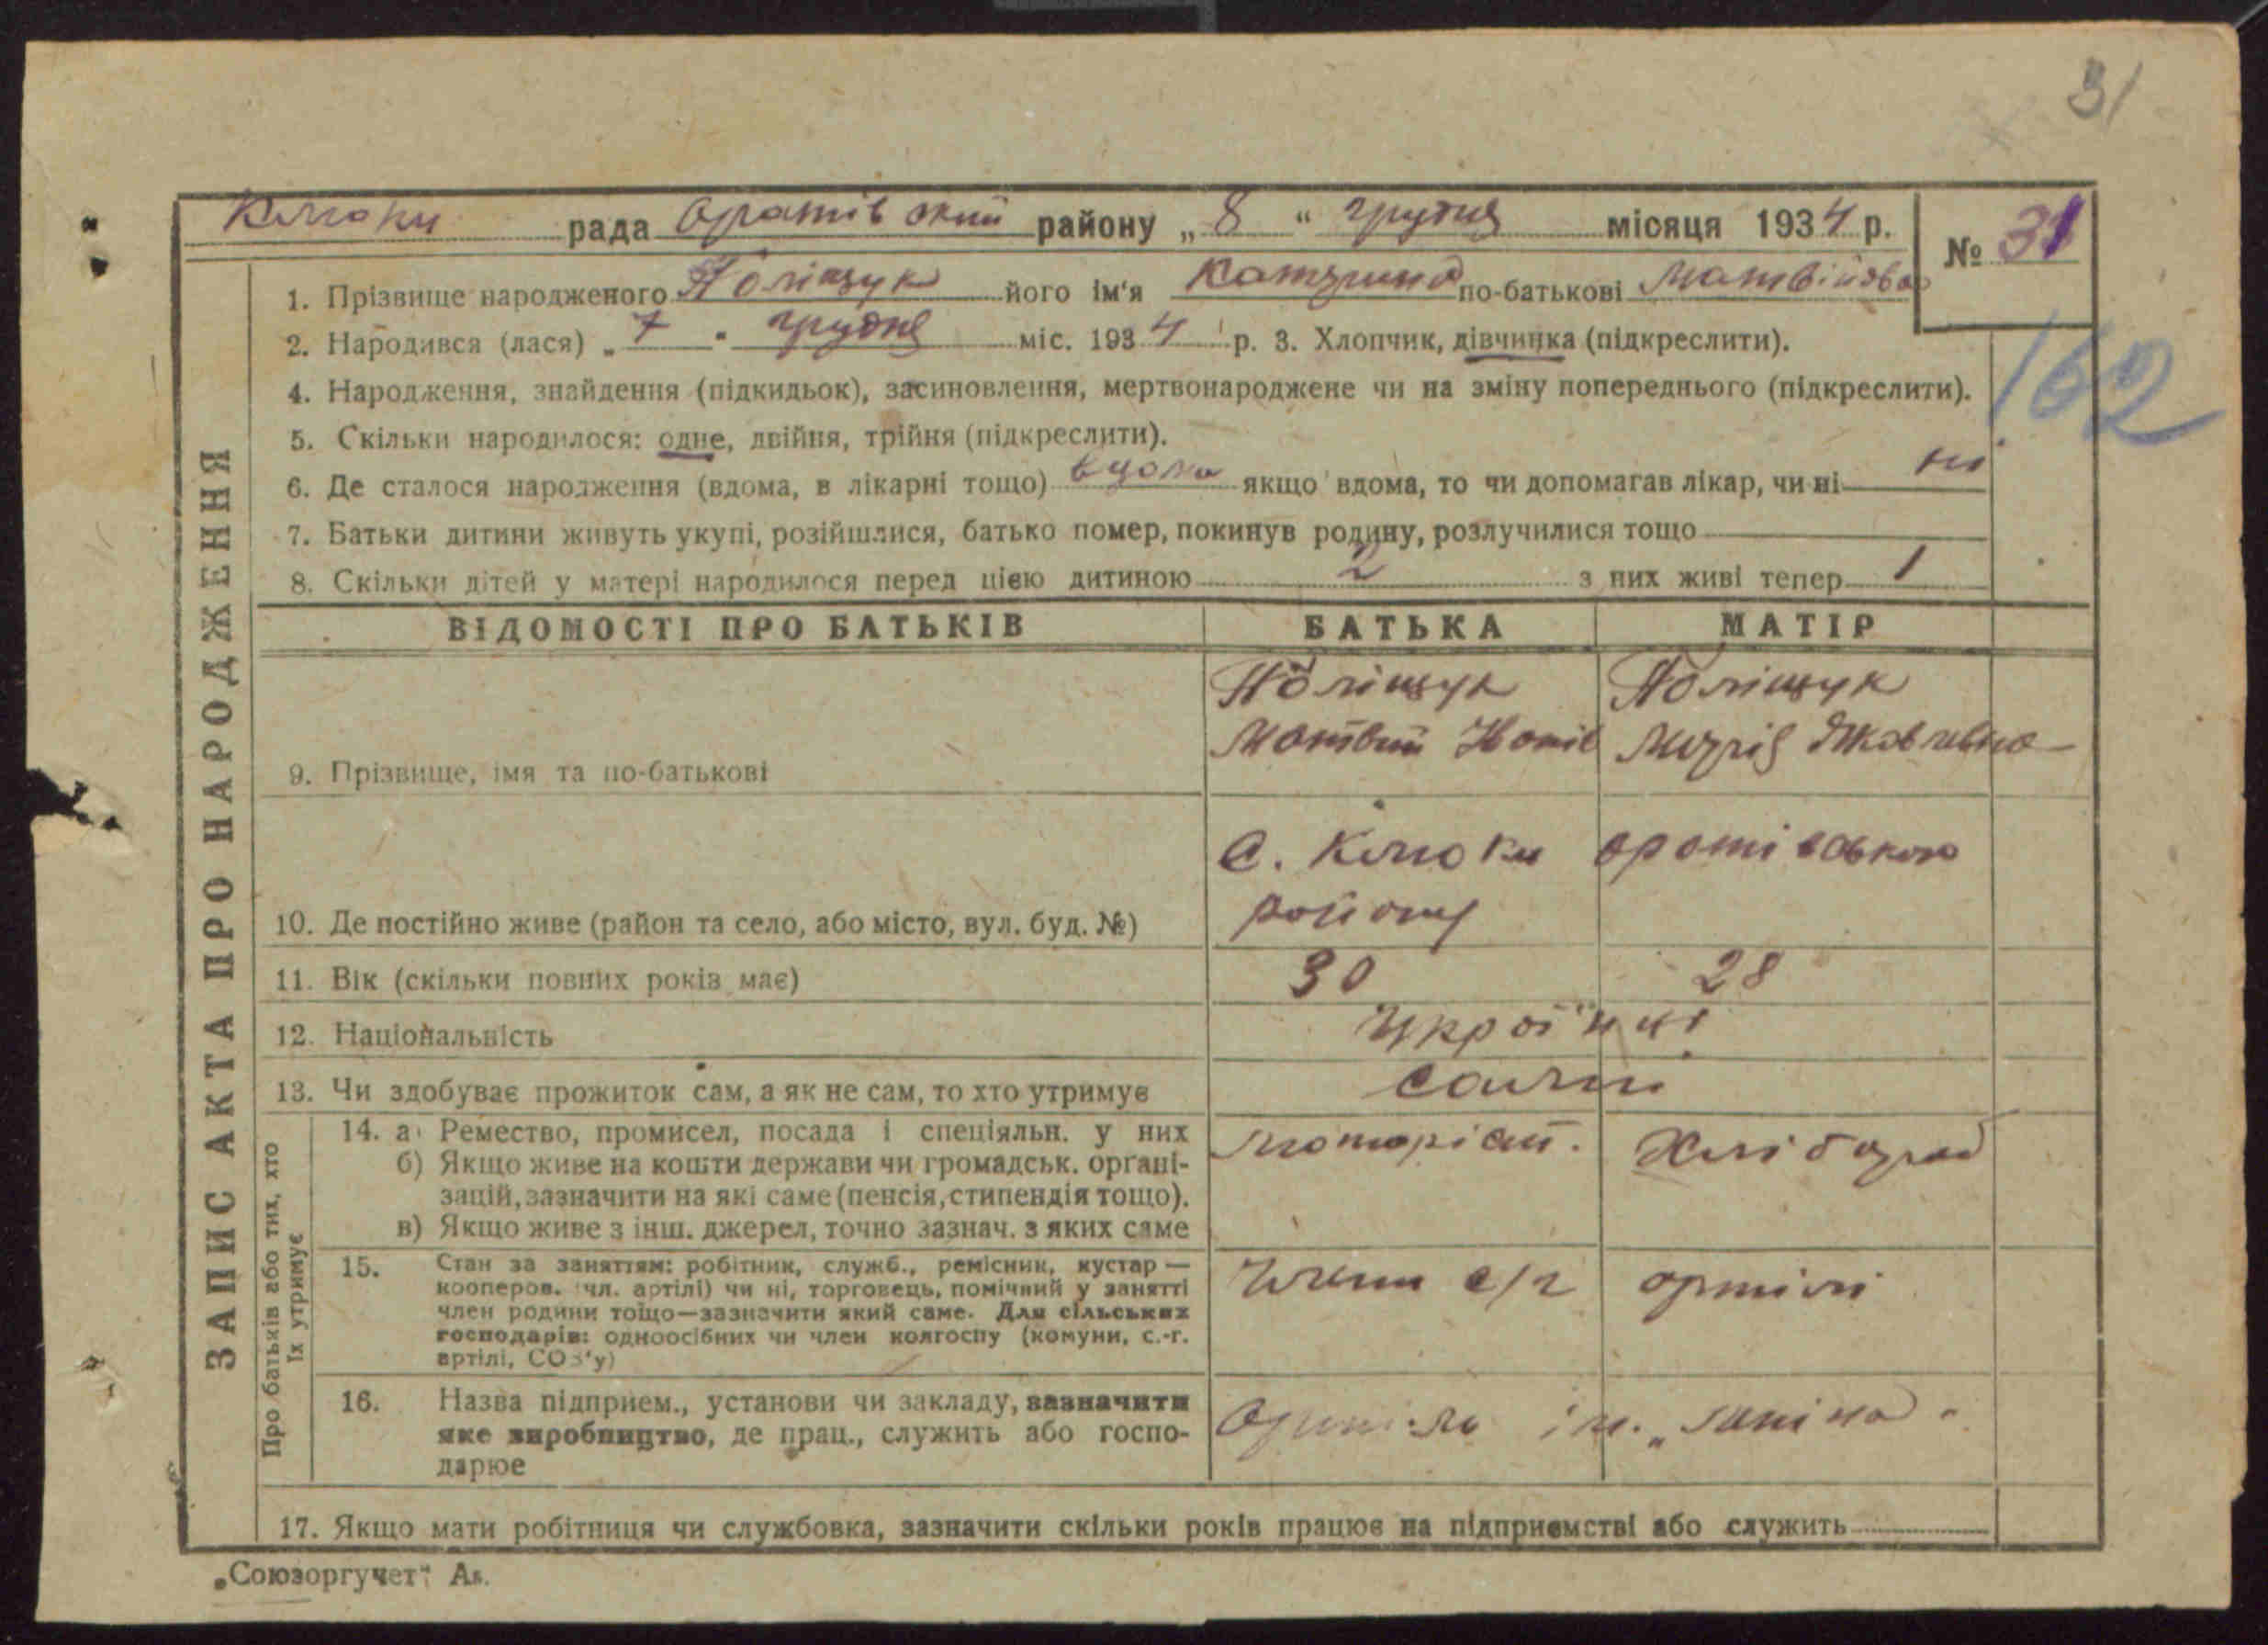 31
Клюки рада Оратівский району „ 8 “ грудня місяця 1934 р.
№ 31
1. Прізвище народженого Поліщук його ім'я Катерина по-батькові Матвійовна
2. Народився (лася) „ 7 " грудня міс. 1934 р. 3. Хлопчик, дівчинка (підкреслити).
162
4. Народження, знайдення (підкидьок), засиновлення, мертвонароджене чи на зміну попереднього (підкреслити).
5. Скільки народилося: одне, двійня, трійня (підкреслити).
6. Де сталося народження (вдома, в лікарні тощо) вдома якщо вдома, то чи допомагав лікар, чи ні ні
7. Батьки дитини живуть укупі, розійшлися, батько помер, покинув родину, розлучилися тощо
8. Скільки дітей у матері народилося перед цією дитиною 2 з них живі тепер 1
ЗАПИС АКТА ПРО НАРОДЖЕННЯ
ВІДОМОСТІ ПРО БАТЬКІВ БАТЬКА МАТІР
Поліщук Поліщук
Матвий Марія Яковлевна
9. Прізвище, імя та по-батькові
С. Клюки оратівського
району
10. Де постійно живе (район та село, або місто, вул. буд. №)
11. Вік (скільки повних років має) 30 28
12. Національність Україннці
13. Чи здобуває прожиток сам, а як не сам, то хто утримує самі
Про батьків або тих, хто
їх утримує
14. а) Ремество, промисел, посада і спеціяльн. у них моторіст. Хлібороб
б) Якщо живе на кошти держави чи громадськ. органі-
зацій, зазначити на які саме (пенсія, стипендія тощо).
в) Якщо живе з інш. джерел, точно зазнач. з яких саме
15. Стан за заняттям: робітник, служб., ремісник, кустар — Члени с/г артілі
кооперов. (чл. артілі) чи ні, торговець, помічний у занятті
член родини тощо—зазначити який саме. Для сільських
господарів: одноосібних чи член колгоспу (комуни, с.-г.
артілі, СОЗ'у)
16. Назва підприєм., установи чи закладу, зазначити Артіль ім. „
яке виробництво, де прац., служить або госпо-
дарює
17. Якщо мати робітниця чи службовка, зазначити скільки років працює на підприємстві або служить
„Союзоргучет“